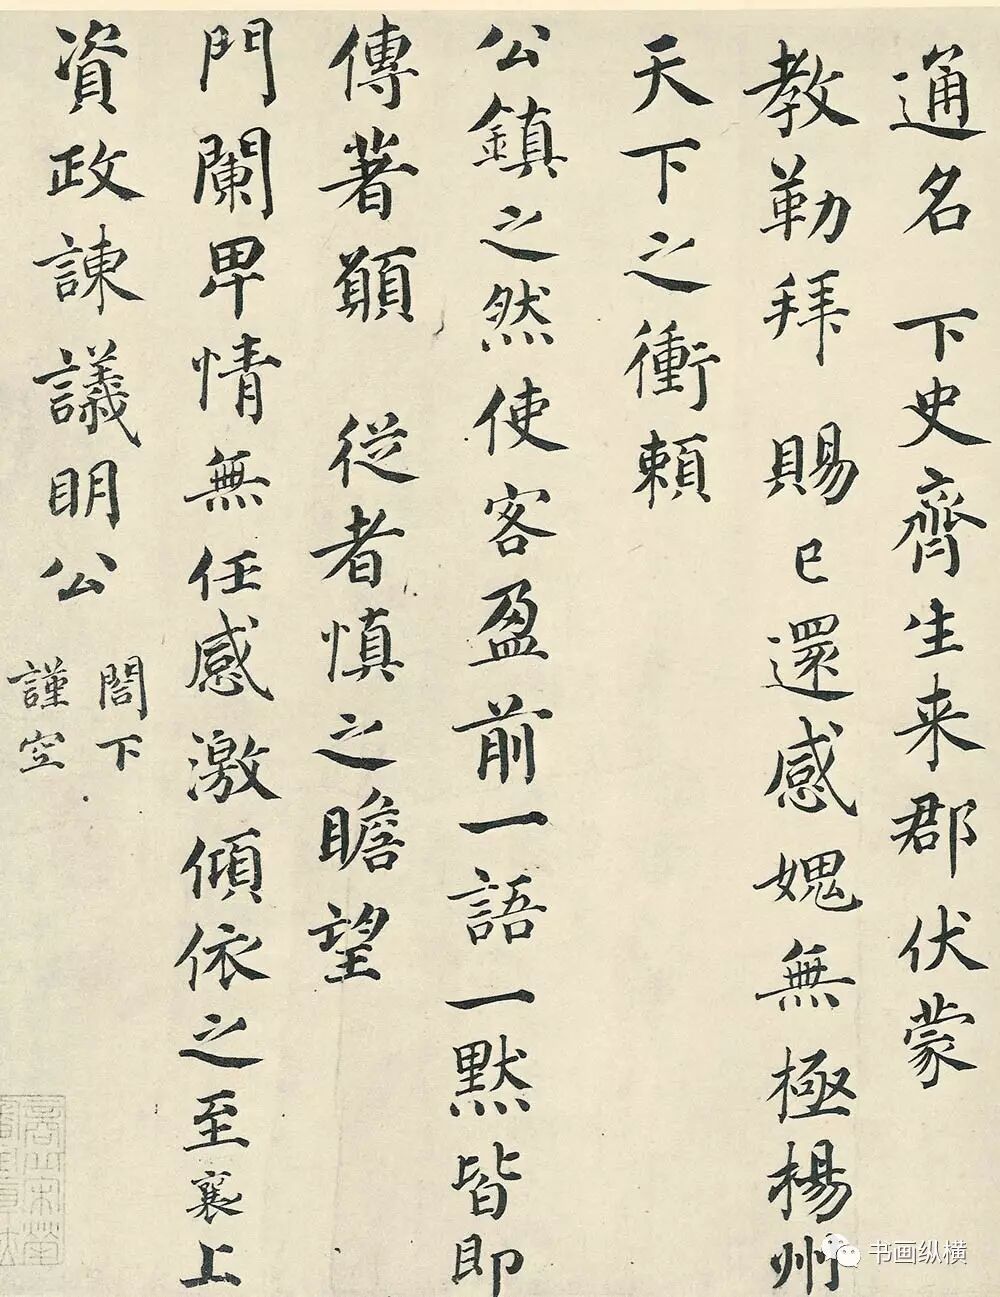 通名　下史齊生来郡伏蒙
教勒拜　賜已還感媿無極楊州
天下之衝賴
公鎮之然使客盈前一語一默皆即
傳著願　從者慎之瞻望
門闌卑情無任感激傾依之至襄上
資政諫議明公
閤下
謹空
书画纵横